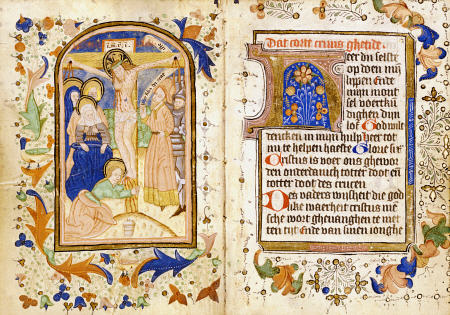 I·N·R·I
Dat corte cruus gheide
Heer du selste
op doen mijn
lippen Ende
mijn mont
sel voertkū
dighen dijn
lof God wil
dencken in mijn hulp heer tot
mij te helpen haeste Glorie
Cristus is voer ons ghewor
den onderdanich totter doot en
totter doot des crucen
Des vaders wijsheit die god
like waerheit cristus mē
sche wort ghevanghen te met
ten tijt Ende van sinen ionghe